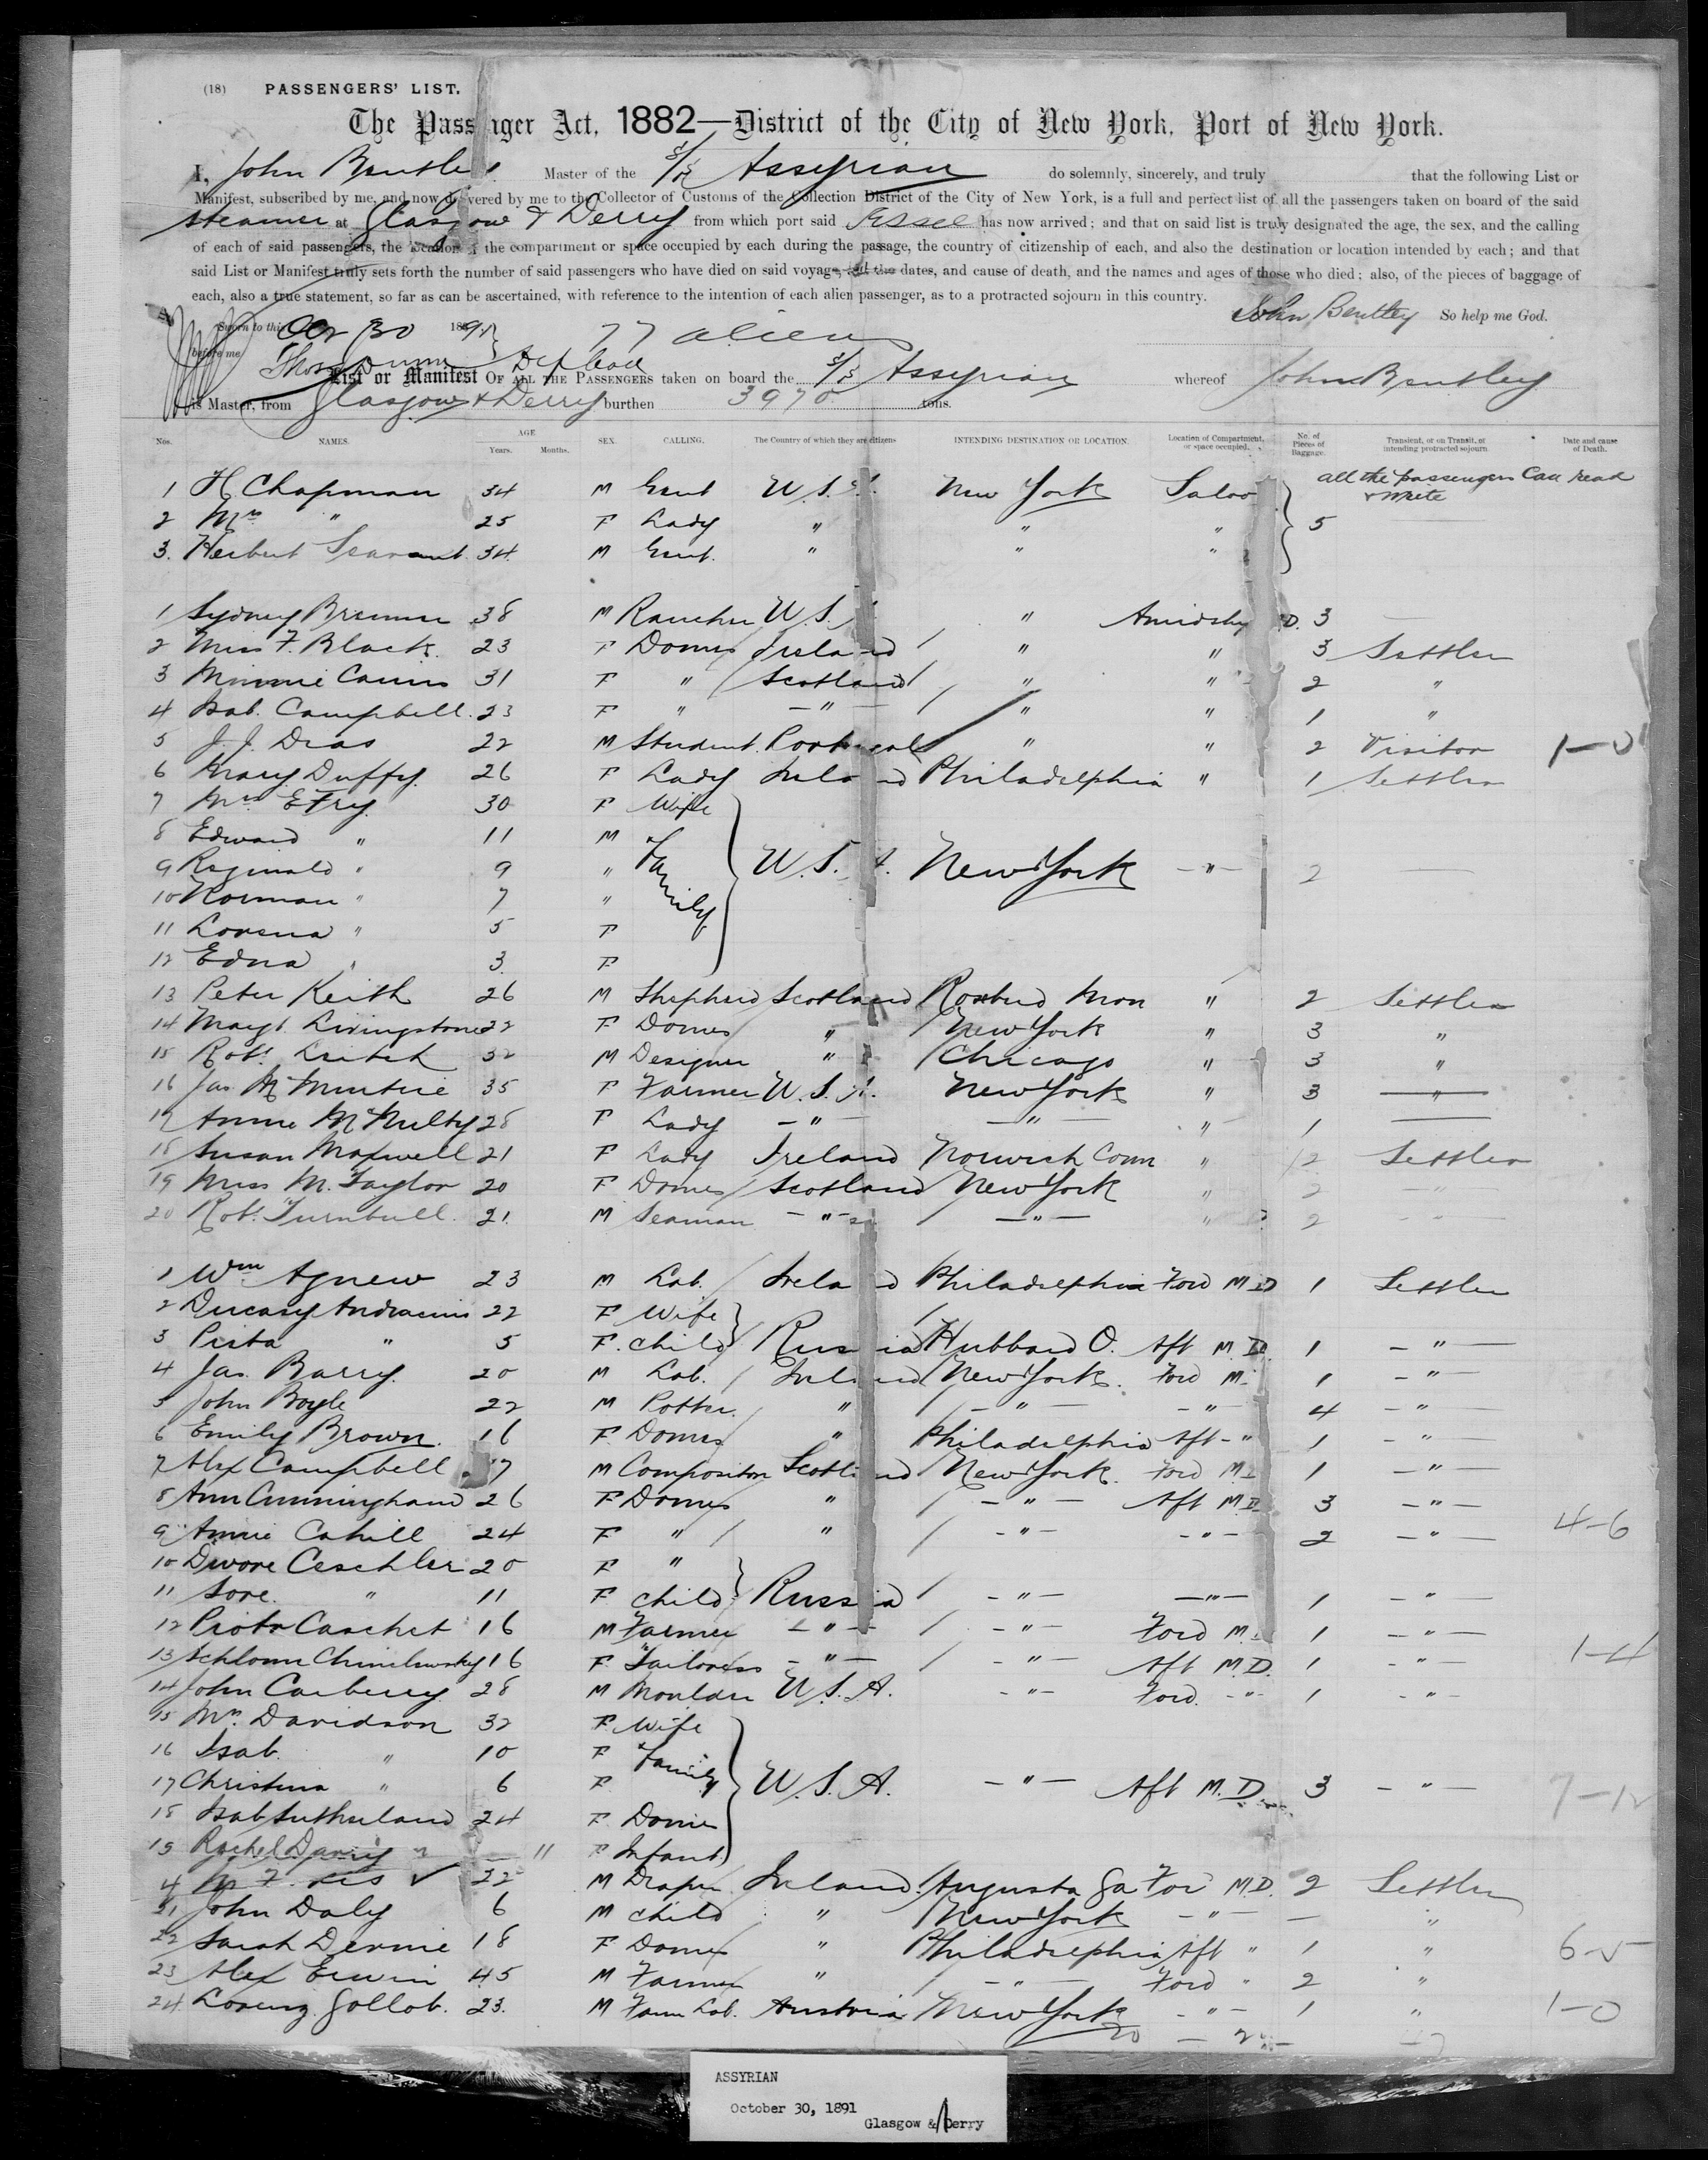 (18) PASSENGERS' LIST.
The Passenger Act, 1882—District of the City of New York, Port of New York.
I, John Bentley Master of the S/S Assyrian do solemnly, sincerely, and truly that the following List or
Manifest, subscribed by me, and now delivered by me to the Collector of Customs of the Collection District of the City of New York, is a full and perfect list of all the passengers taken on board of the said
steamer at Glasgow & Derry from which port said vessel has now arrived; and that on said list is truly designated the age, the sex, and the calling
of each of said passengers, the location of the compartment or space occupied by each during the passage, the country of citizenship of each, and also the destination or location intended by each; and that
said List or Manifest truly sets forth the number of said passengers who have died on said voyage, and the dates, and cause of death, and the names and ages of those who died; also, of the pieces of baggage of
each, also a true statement, so far as can be ascertained, with reference to the intention of each alien passenger, as to a protracted sojourn in this country.
John Bentley So help me God.
Sworn to this Oct 30 1891 77 aliens
before me Thos Dunn
List or Manifest OF ALL THE PASSENGERS taken on board the S/S Assyrian whereof John Bentley
is Master, from Glasgow & Derry burthen 3970 tons.
Nos. NAMES. AGE Years. Months. SEX. CALLING. The Country of which they are citizens INTENDING DESTINATION OR LOCATION. Location of Compartment, or space occupied. No. of Pieces of Baggage. Transient, or on Transit, or intending protracted sojourn Date and cause of Death.
all the passengers Can read & write
1 H Chapman 34 M Gent U.S.A. New York Saloon
2 Mrs " 25 F Lady " " " 5
3. Herbert 34 M Gent. " " "
1 Sydney 38 M Rancher U.S. " Amidship D. 3 —
2 Miss F. Black 23 F Domes Ireland " " 3 Settler
3 Minnie 31 F " Scotland " " 2 "
4 Isab. Campbell. 23 F " —"— " " 1 "
5 J. J. Dias 22 M Student. Portugal " " 2 Visitor 1-0
6 Mary Duffy 26 F Lady Ireland Philadelphia " 1 Settler
7 Mrs E Fry 30 F Wife
8 Edward " 11 M Family
9 Reginald " 9 " U.S.A. New York —"— 2 —
10 Norman " 7 "
11 Lorena " 5 F
12 Edna " 3 F
13 Peter Keith 26 M Shepherd Scotland Rosebud Mon " 2 Settler
14 Margt. Livingstone 22 F Domes " New York " 3 "
15 Robt. Leitch 32 M Designer " Chicago " 3 "
16 Jas. 35 F Farmer U.S.A. New York " 3 —"—
17 Annie McNulty 28 F Lady —"— —"— " 1 —
18 Susan Maxwell 21 F Lady Ireland Norwich Conn " 2 Settler
19 Miss M. Taylor 20 F Domes Scotland New York " 2 —"—
20 Robt. Turnbull. 21 M Seaman —"— —"— " 2 —"—
1 Wm Agnew 23 M Lab. Ireland Philadelphia Ford M D 1 Settler
2 22 F Wife
3 5 F. child Russia Hubbard O. Aft M. D. 1 —"—
4 Jas. Barry. 20 M Lab. Ireland New York. Ford M. 1 —"—
5 John Boyle 22 M Potter. " —"— —"— 4 —"—
6 Emily Brown. 16 F. Domes " Philadelphia Aft —" 1 —"—
7 Alex Campbell M Compositor Scotland New York. Ford M 1 —"—
8 Ann Cunningham 26 F Domes " —"— Aft M. D 3 —"—
9 Annie Cahill 24 F " " —"— —"— 2 —"— 4-6
10 Dwore Ceschler 20 F "
11 Sore. " 11 F child Russia —"— —"— 1 —"—
12 Piotr Caschet 16 M Farmer —"— —"— Ford M. 1 —"—
13 16 F. Tailoress —"— —"— Aft M.D. 1 —"— 1-4
14 John Carberry 28 M Moulder U.S.A. —"— Ford. —"— 1 —"—
15 Mrs. Davidson 32 F. Wife
16 Isab. " 10 F Family
17 Christina " 6 F. U.S.A. —"— Aft M.D. 3 —"— 7-12
18 Isab Sutherland 24 F Domes
19 Rachel 11 F Infant
22 M Draper Ireland. Augusta Ga For M.D. 2 Settler
21 John Daly 6 M child " New York —"— — "
22 Sarah 18 F Domes " Philadelphia Aft " 1 " 6-5
23 Alex Erwin 45 M Farmer " —"— Ford " 2 "
24 Lorenz Gollob. 23. M Farm Lab. Austria New York —"— 1 " 1-0
ASSYRIAN
October 30, 1891
Glasgow & Derry